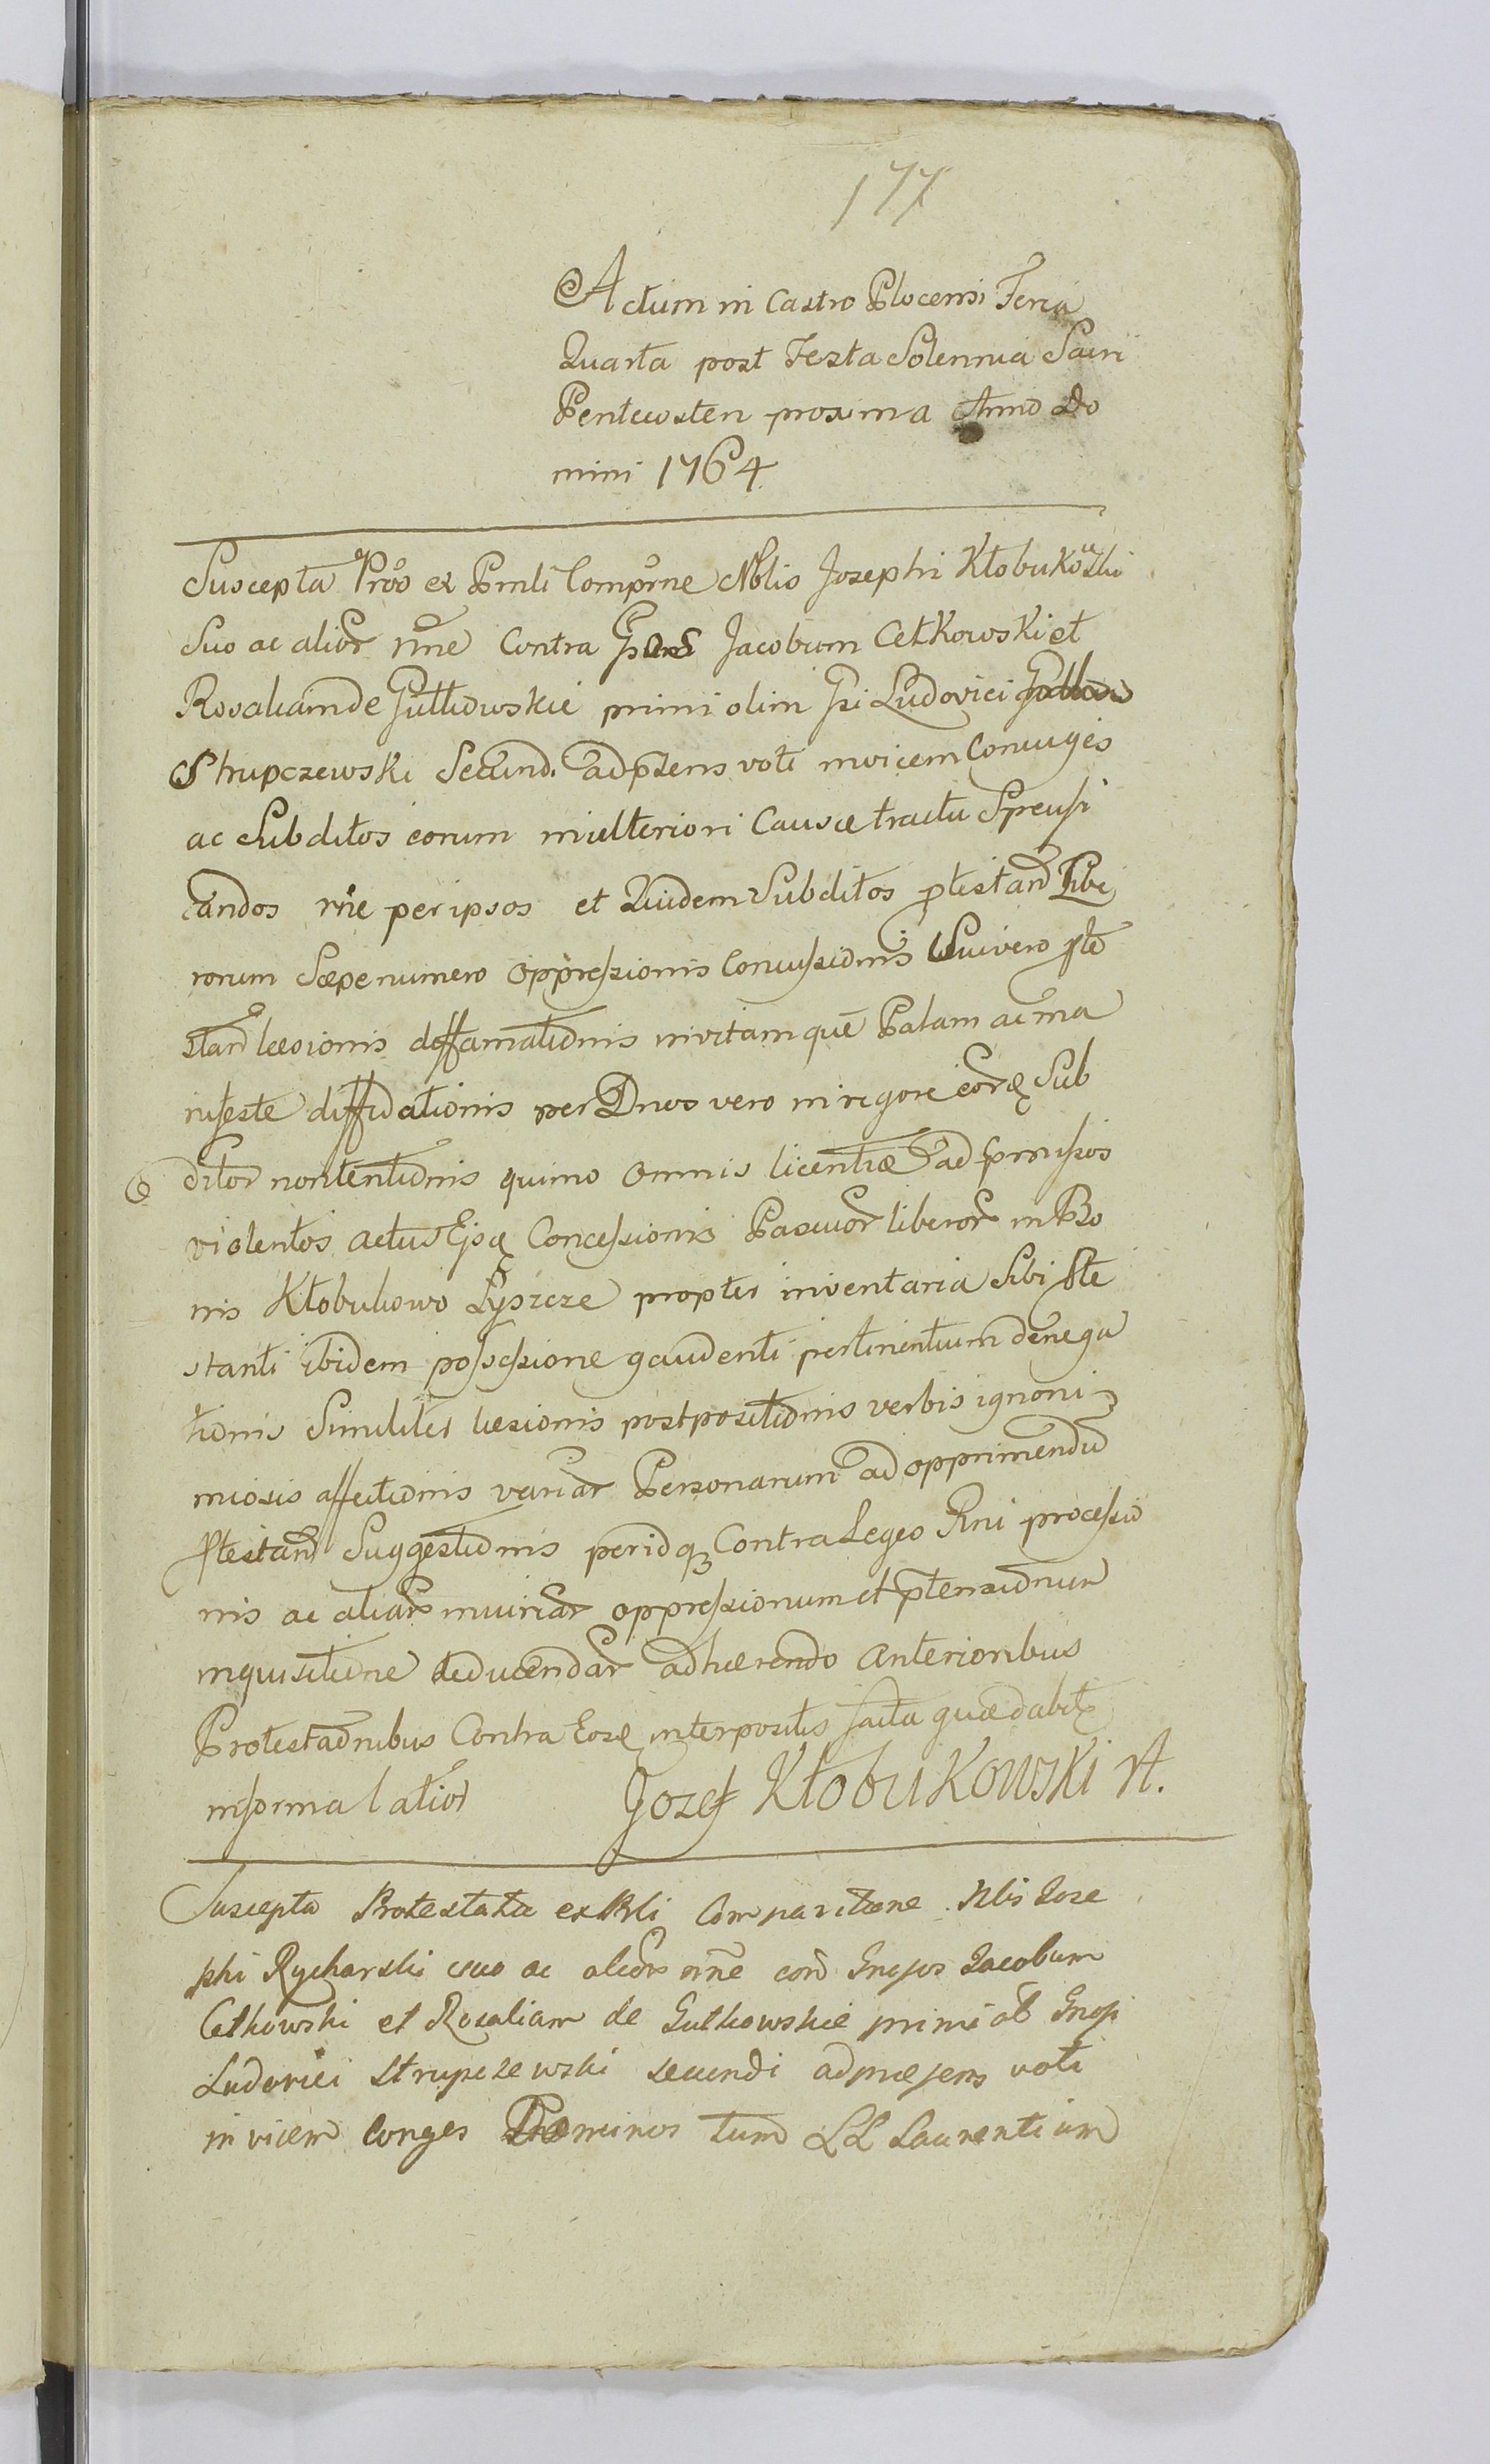 177
Actum in Castro Plocensi Feria
Quarta post Festa Solennia Sacri
Pentecosten proxima Anno Do
mini 1764
Suscepta Prõo ex Pnnli Comprne Nblis Josephi Kłobukowski
Suo ac alior nne Contra Jacobum Cetkowski et
Rosaliam de Gutkowskie primi olim Gsi Ludovici
Strupczewski Secund. ad pzens voti invicem Coniuges
ac Subditos eorum in ulteriori Causæ tractu Specifi
candos rne per ipsos et Quidem Subditos ptestand Libe
rorum Sæpenumero oppressionis Concussionis Sui vero pte
stand læsionis deffamationis invitamque Palam ac ma
nifeste diffidationis per Dnos vero in rigore eorq Sub
ditor nontentionis quimo omnis licentiæ ad pmissos
violentos actus Ejsq Concessionis Pascuor liberor in Bo
nis Kłobukowo Łyszcze propter inventaria Sibi pte
stanti ibidem possessione gaudenti pertinentium denega
tionis Similiter læsionis postpositionis verbis ignomi
miosis affectionis variar Personarum ad opprimendu
ptestand Suggestionis per idq3 Contra Leges Rni processio
nis ac aliar iniuriar oppressionum et ptensionum
inquisitione deducendar adhærendo anterioribus
Protestaonibus Contra Eosq interpositis facta quædabitr
in forma latior Jozef Kłobukowski A.
Suscepta Protestatio ex Pli Comparitione Nblis Jose
phi Rycharski suo ac alior nne con Gnosos Jacobum
Cetkowski et Rosaliam de Gutkowskie primi ol Gnosi
Ludovici Strupczewski secundi ad præsens voti
invicem conges Dominos tum LL Laurentium